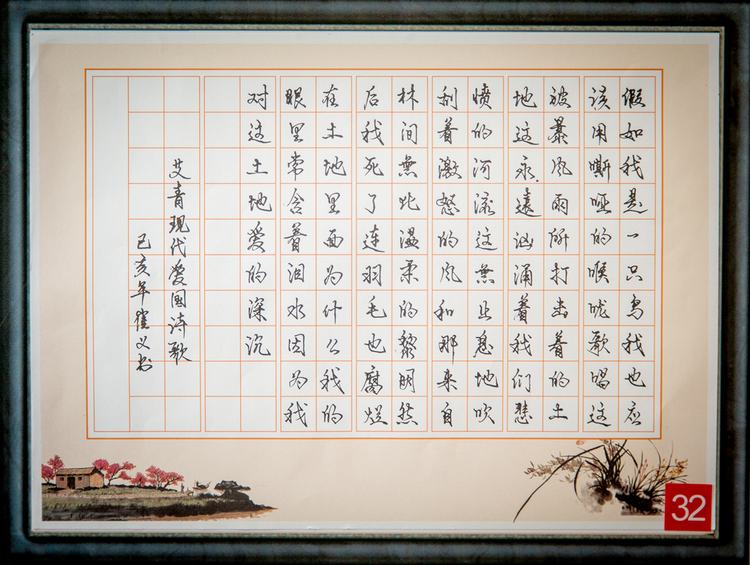 假如我是一只鸟我也应
该用嘶哑的喉咙歌唱这
被暴风雨所打击着的土
地这永遠汹涌着我们悲
愤的河流这無止息地吹
刮着激怒的风和那来自
林间無比温柔的黎明然
后我死了连羽毛也腐烂
在土地里面为什么我的
眼里常含着泪水因为我
对这土地爱的深沉
艾青现代爱国诗歌
己亥年崔义书
32